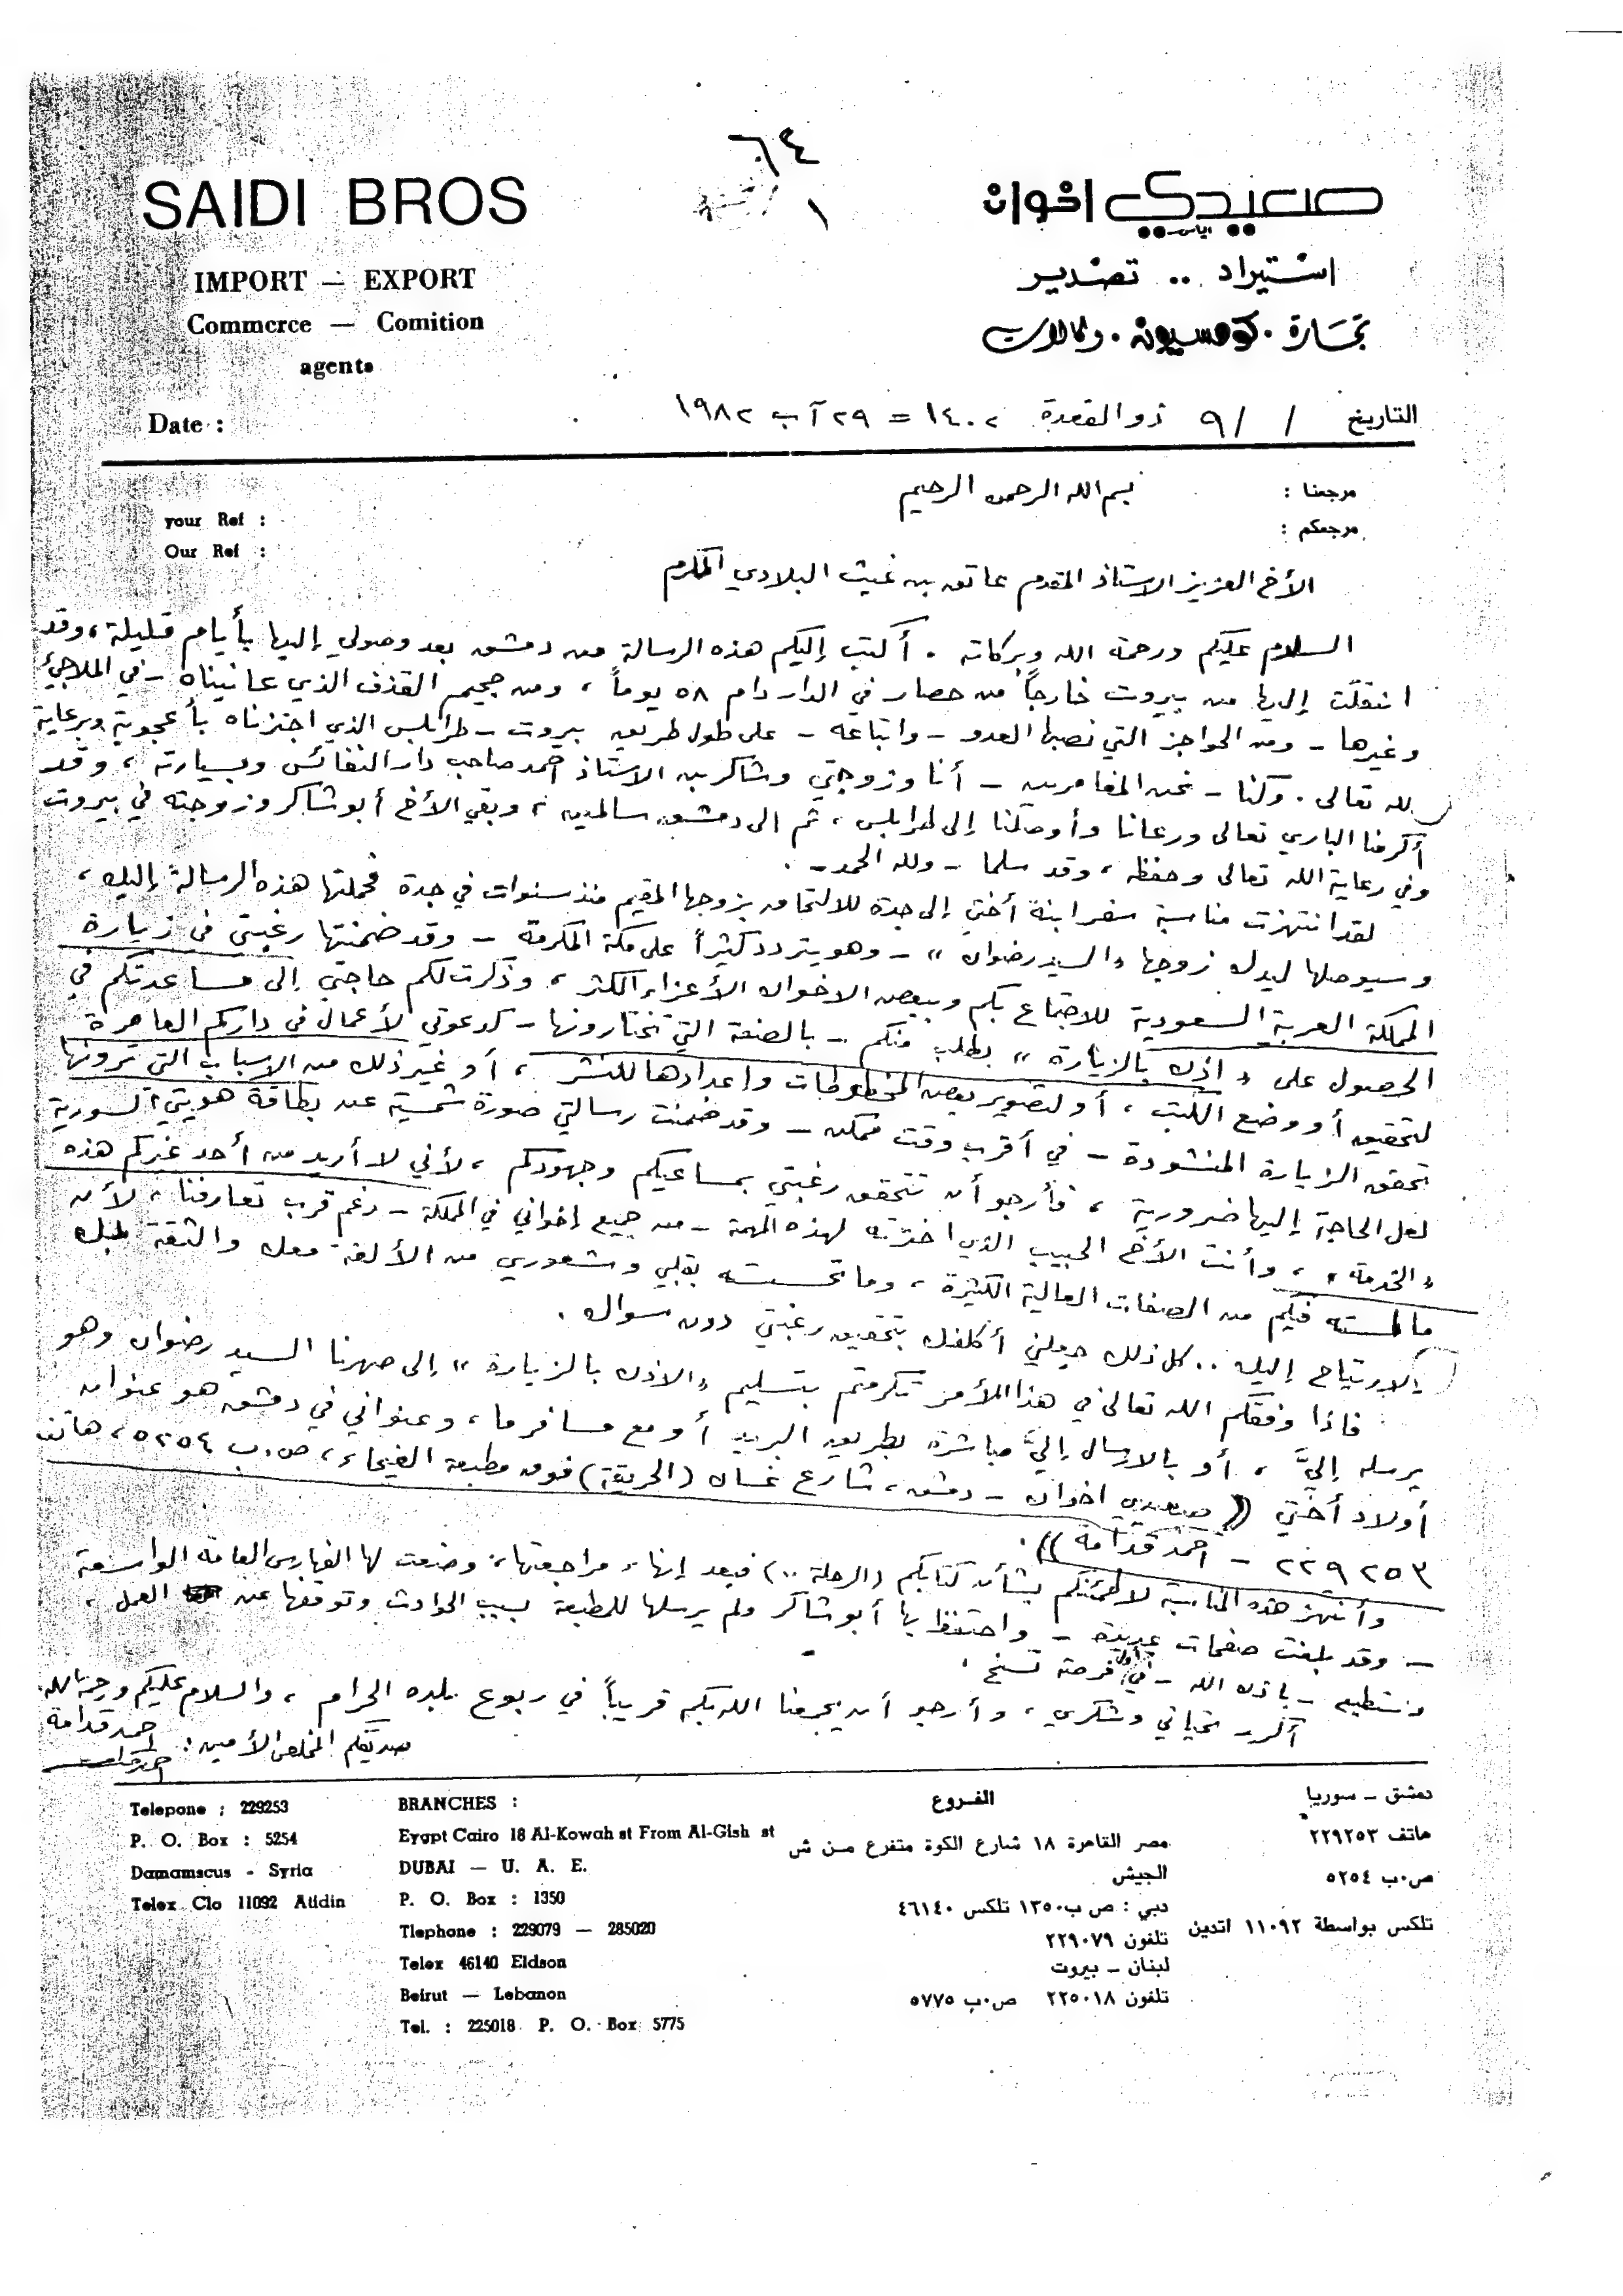 ٦٤
١
SAIDI BROS
صعيدي اخوان
IMPORT — EXPORT
استيراد .. تصدير
Commerce — Comition
agents
تجارة . كومسيون . وكالات
Date :
التاريخ / / ٩ ذو القعدة ١٤٠٢ = ٢٩ آب ١٩٨٢
مرجعنا :
بسم الله الرحمن الرحيم
your Ref :
مرجعكم :
Our Ref :
الأخ العزيز الاستاذ المقدم عاتق بن غيث البلادي المكرم
السلام عليكم ورحمة الله وبركاته . أكتب إليكم هذه الرسالة من دمشق بعد وصولي إليها بأيام قليلة ، وقد
انتقلت إليها من بيروت خارجاً من حصار في الدار دام ٥٨ يوماً ، ومن جحيم القذف الذي عانيناه - في الملاجئ
وغيرها - ومن الحواجز التي نصبها العدو - واتباعه - على طول طريق بيروت - طرابلس الذي اجتزناه بأعجوبة وبرعاية
الله تعالى . وكنا - نحن المغامرين - أنا وزوجتي وشاكر بن الاستاذ احمد صاحب دار النفائس وبسيارته ، وقد
أكرمنا الباري تعالى ورعانا وأوصلنا إلى طرابلس ، ثم الى دمشق سالمين ، وبقي الأخ أبو شاكر وزوجته في بيروت
وفي رعاية الله تعالى وحفظه ، وقد سلما - ولله الحمد - .
لقد انتهزت مناسبة سفر ابنة أختي إلى جدة للالتحاق بزوجها المقيم منذ سنوات في جدة فحملتها هذه الرسالة إليك ،
وسيوصلها ليدك زوجها « السيد رضوان » - وهو يتردد كثيراً على مكة المكرمة - وقد ضمنتها رغبتي في زيارة
المملكة العربية السعودية للاجتماع بكم وببعض الاخوان الأعزاء الكثر ، وذكرت لكم حاجتي إلى مساعدتكم في
الحصول على « اذن بالزيارة » بطلب منكم - بالصفة التي تختارونها - كدعوتي لأعمال في داركم العامرة
لتحقيق أو وضع الكتب ، أو لتصوير بعض المخطوطات وإعدادها للنشر ، أو غير ذلك من الاسباب التي ترونها
تحقق الزيارة المنشودة - في أقرب وقت ممكن - وقد ضمنت رسالتي صورة شمسية عن بطاقة هويتي السورية
لعل الحاجة إليها ضرورية ، فأرجو أن تتحقق رغبتي بمساعيكم وجهودكم ، لأني لا أريد من أحد غيركم هذه
« الخدمة » ، وأنت الأخ الحبيب الذي اخترته لهذه المهمة - من جميع إخواني في المملكة - رغم قرب تعارفنا ، لأن
ما لمسته فيكم من الصفات العالية الكثيرة ، وما تحسسته بقلبي وشعوري من الألفة معك والثقة بك
والارتياح إليك .. كل ذلك جعلني أكلفك بتحقيق رغبتي دون سواك .
فاذا وفقكم الله تعالى في هذا الأمر تكرمتم بتسليم « الاذن بالزيارة » إلى صهرنا السيد رضوان وهو
يرسله إليَّ ، أو بالارسال إليَّ مباشرة بطريق البريد أو مع مسافر ما ، وعنواني في دمشق هو عنوان
أولاد أختي (( صعيدي اخوان - دمشق ، شارع غسان (الحريقة) فوق مطبعة الفيحاء ، ص.ب ٥٢٥٤ ، هاتف
٢٢٩٢٥٣ - احمد قدامة )) .
وأنتهز هذه المناسبة لاطمئنكم بشأن كتابكم (الرحلة ..) فبعد إنهاء مراجعتها ، وضعت لها الفهارس العامة الواسعة
- وقد بلغت صفحات عديدة - واحتفظ بها أبو شاكر ولم يرسلها للمطبعة بسبب الحوادث وتوقفها عن العمل ،
وستطبع - باذن الله - في أول فرصة تسنح .
أكرر تحياتي وشكري ، وأرجو أن يجمعنا الله بكم قريباً في ربوع بلده الحرام ، والسلام عليكم ورحمة الله
صديقكم المخلص الأمين : احمد قدامة
دمشق - سوريا
هاتف ٢٢٩٢٥٣
ص.ب ٥٢٥٤
تلكس بواسطة ١١٠٩٢ اتدين
الفروع
مصر القاهرة ١٨ شارع الكوة متفرع من ش
الجيش
دبي : ص ب ١٣٥٠ تلكس ٤٦١٤٠
تلفون ٢٢٩٠٧٩
لبنان - بيروت
تلفون ٢٢٥٠١٨ ص.ب ٥٧٧٥
BRANCHES :
Eygpt Cairo 18 Al-Kowah st From Al-Gish st
DUBAI — U. A. E.
P. O. Box : 1350
Tlephone : 229079 — 285020
Telex 46140 Eldson
Beirut — Lebanon
Tel. : 225018 P. O. Box 5775
Telepone : 229253
P. O. Box : 5254
Damamscus - Syria
Telex Clo 11092 Atidin